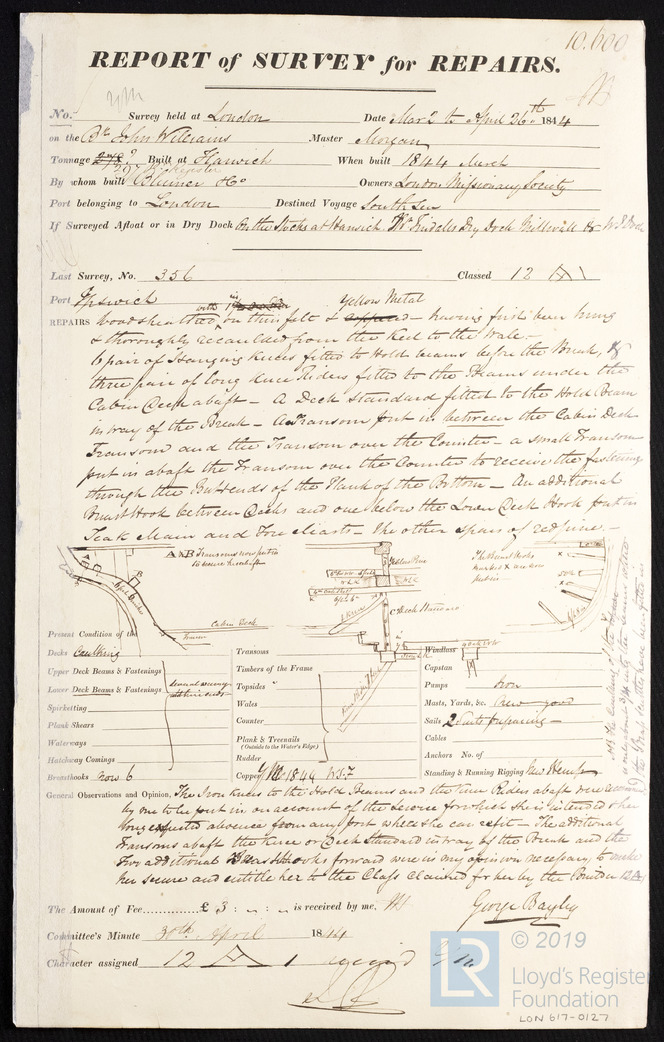 10.600
REPORT of SURVEY for REPAIRS.
No. Survey held at London Date Mar 2 to April 26th 1844
on the Bk John Williams Master Morgan
Tonnage 296? Built at Harwich When built 1844 March
By whom built Owners London Missionary Society
Port belonging to London Destined Voyage South Sea
If Surveyed Afloat or in Dry Dock On the Stocks at Harwich Dry Dock Millwall & W I Dock
Last Survey, No. 356 Classed 12 A 1
Port Ipswich with in Yellow Metal
REPAIRS Wood sheathed, on thin felt & coppered - having first been hung
& thoroughly recaulked from the Keel to the Wale -
6 pair of Hanging Knees fitted to Hold beams before the Break, &
three pair of long Knee Riders fitted to the Beams under the
Cabin Deck abaft - A Deck Standard fitted to the Hold Beam
in way of the Break - A Transom put in between the Cabin Deck
Transom and the Transom over the Counter - a small Transom
put in abaft the Transom over the Counter to receive the fastening
through the Buttends of the Plank of the Bottom - An additional
Breast Hook between Decks and one below the Lower Deck Hook put in
Teak Main and Fore Masts - the other spars of red pine -
A & B Transoms now put in
to secure the
Yellow Pine
The Breast Hooks
marked X are now
put in
Cabin Deck
Transom
C Deck Standard
Present Condition of the
Decks Caulking
Upper Deck Beams & Fastenings
Lower Deck Beams & Fastenings
Spirketting
Plank Shears
Waterways
Hatchway Comings
Breasthooks Now 6
Transoms
Timbers of the Frame
Topsides
Wales
Counter
Plank & Treenails
(Outside to the Water's Edge)
Rudder
Copper YM 1844 WS.7
Windlass
Capstan
Pumps Iron
Masts, Yards, &c. New good
Sails 2 Suits preparing
Cables
Anchors No. of
Standing & Running Rigging New Hemp
General Observations and Opinion, The Iron Knees to the Hold Beams and the Knee Riders abaft were
by me to be put in on account of the Service for which she is intended & her
long expected absence from any port where she can refit - The additional
Transoms abaft the Knee or Deck Standard in way of the Break and the
Two additional Breasthooks forward were in my opinion necessary to make
her secure and entitle her to the Class claimed for her by the Builder 12 A 1
The Amount of Fee £ 3 : „ : „ is received by me,
George Bayley
Committee's Minute 30th April 1844
Character assigned 12 A 1
LR
© 2019
Lloyd's Register
Foundation
LON 617-0127